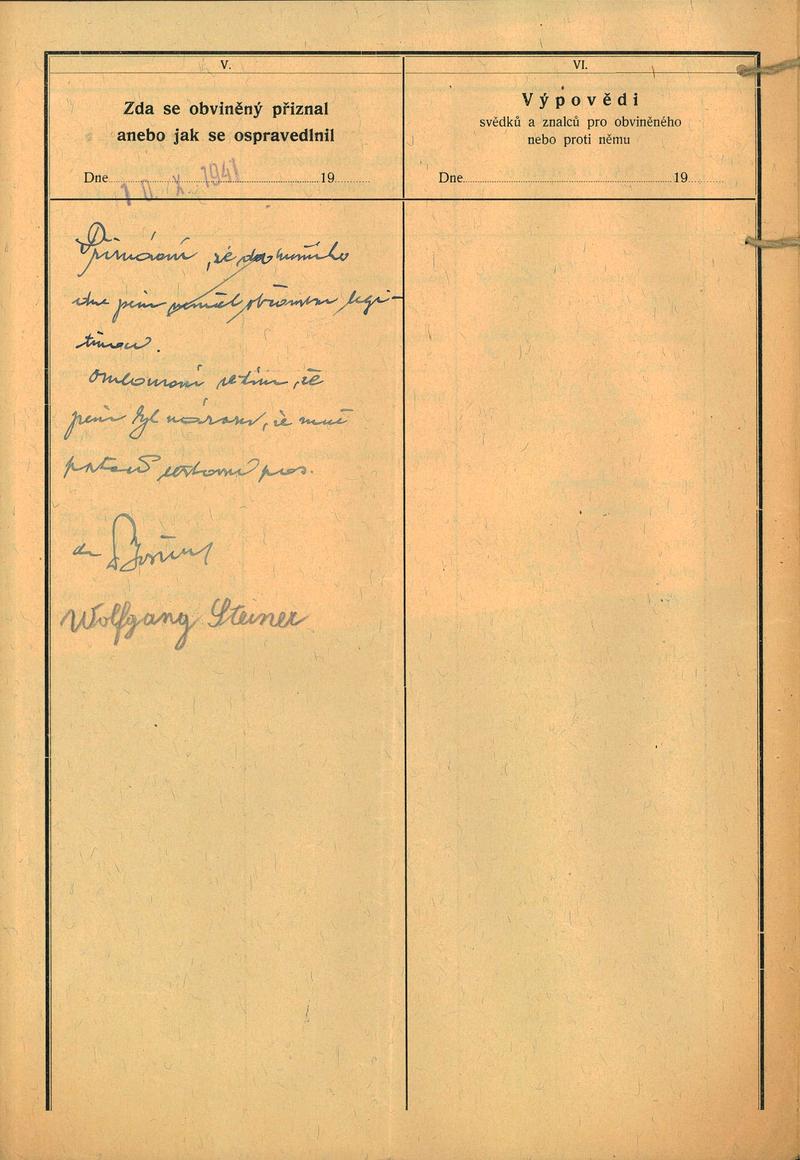 V.
Zda se obviněný přiznal
anebo jak se ospravedlnil
Dne 10. X. 1941 19
VI.
Výpovědi
svědků a znalců pro obviněného
nebo proti němu
Dne 19
Přiznávám, že do
dne jsem legi-
timaci.
Omlouvám se tím, že
jsem byl názoru, že
Wolfgang Steiner